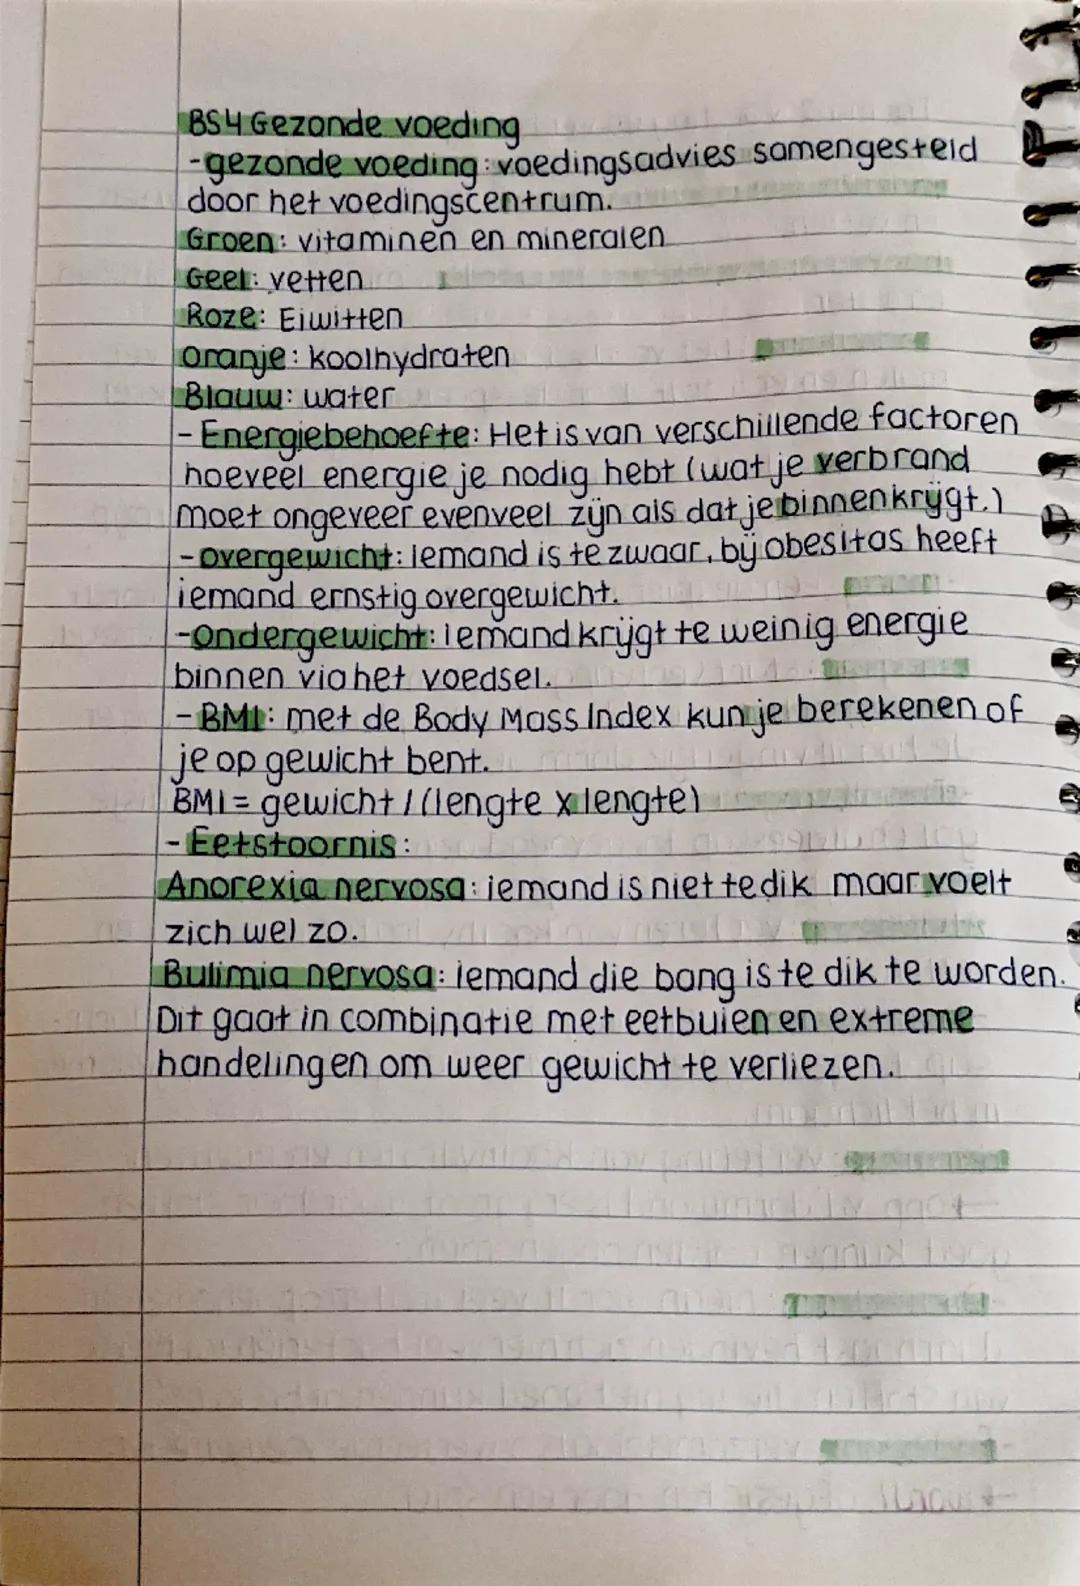 BS4 Gezonde voeding
-gezonde voeding: voedingsadvies samengesteld
door het voedingscentrum.
Groen: vitaminen en mineralen
Geel: vetten
Roze: Eiwitten
oranje: koolhydraten
Blauw: water
- Energiebehoefte: Het is van verschillende factoren
hoeveel energie je nodig hebt (wat je verbrand
moet ongeveer evenveel zijn als dat je binnenkrijgt.)
-overgewicht: Iemand is te zwaar, bij obesitas heeft
iemand ernstig overgewicht.
-Ondergewicht: Iemand krijgt te weinig energie
binnen via het voedsel.
- BMI: met de Body Mass Index kun je berekenen of
je op gewicht bent.
BMI = gewicht / (lengte x lengte)
- Eetstoornis:
Anorexia nervosa: iemand is niet te dik maar voelt
zich wel zo.
Bulimia nervosa: iemand die bang is te dik te worden.
Dit gaat in combinatie met eetbuien en extreme
handelingen om weer gewicht te verliezen.